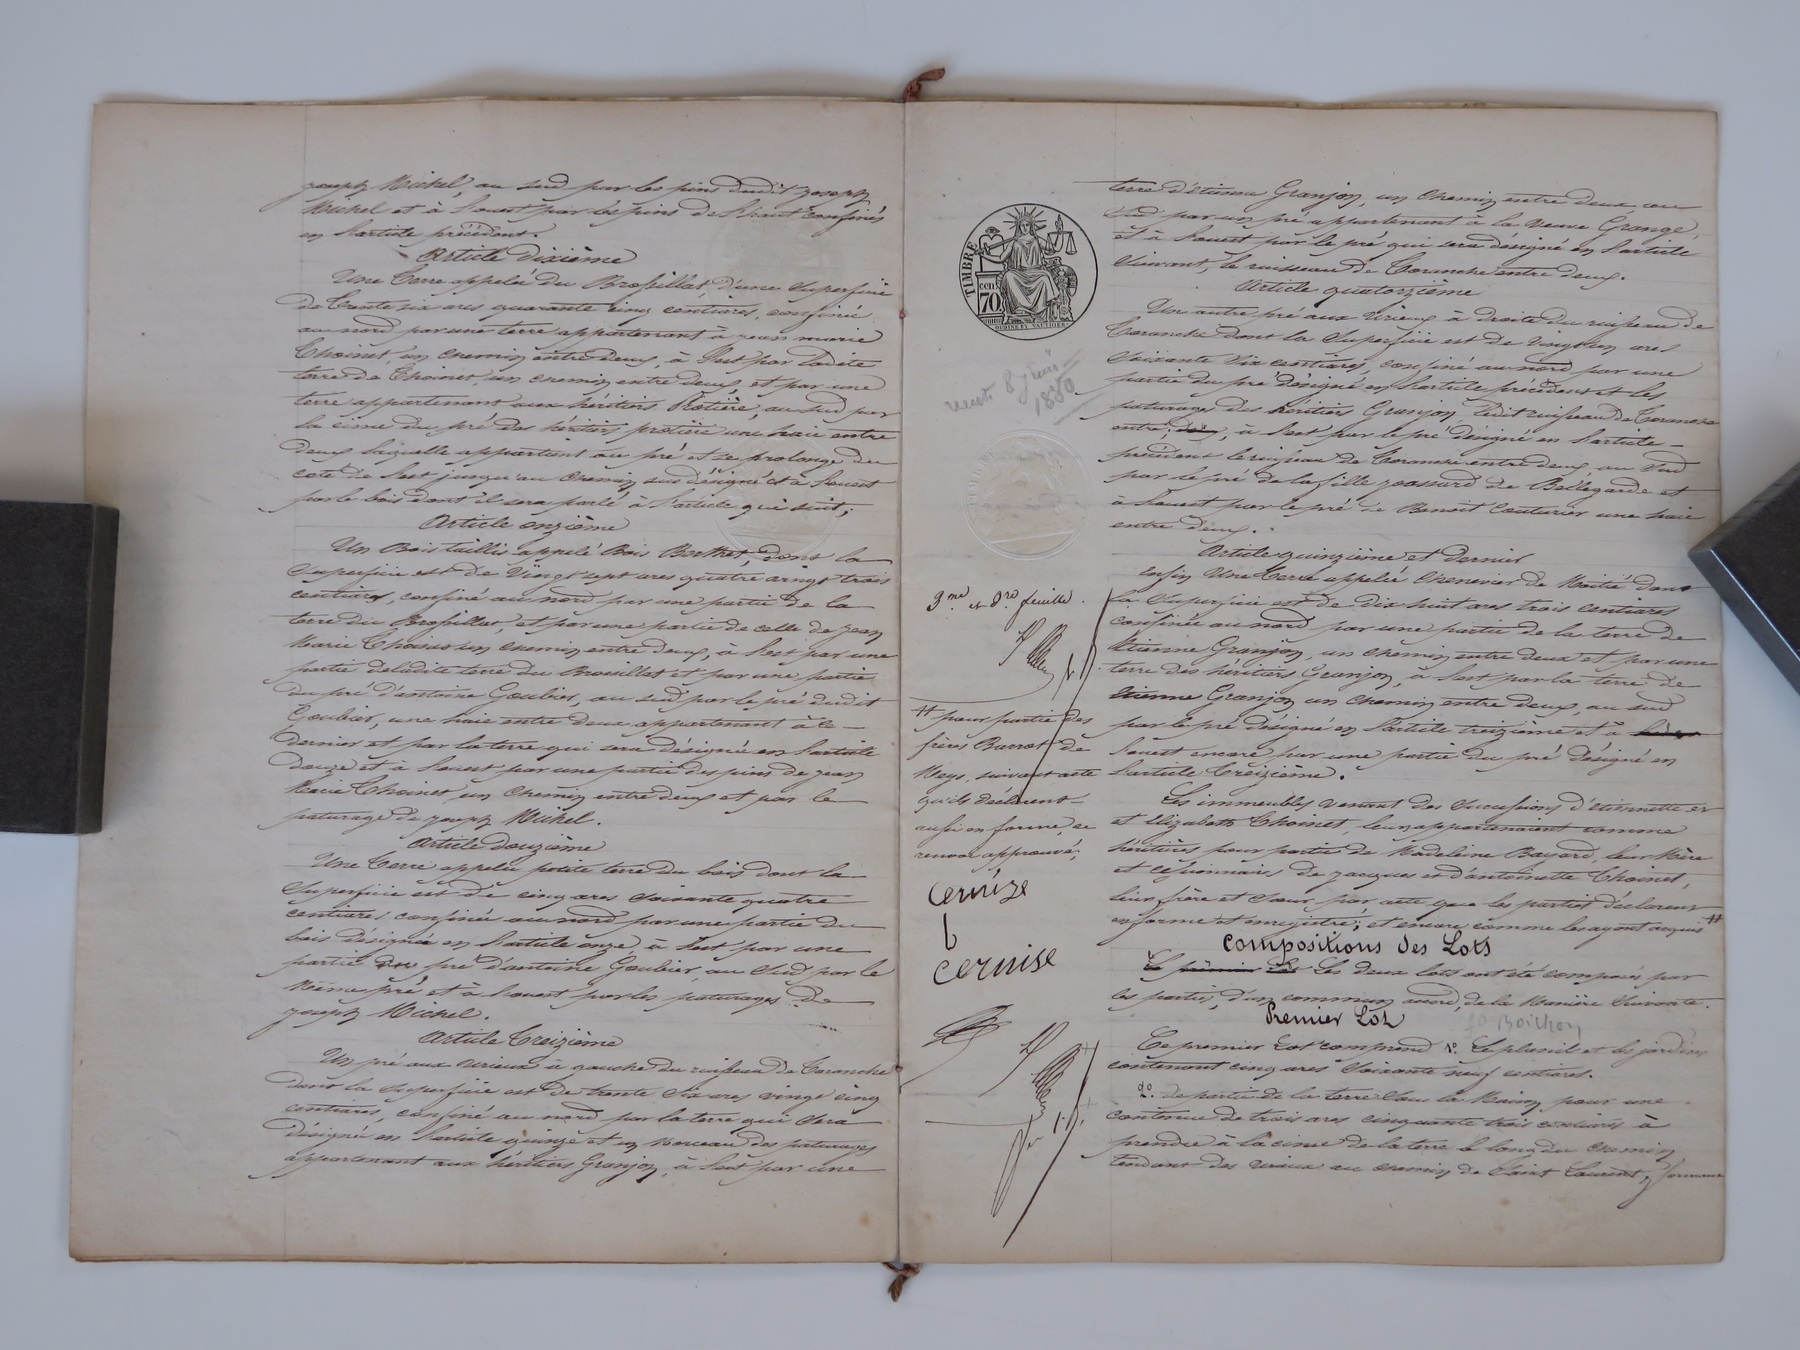 joseph Michel, au sud par les pins dudit joseph
Michel et à l'ouest par les pins de Chaut confinés
en l'article précédent.
Article dixième
Une Terre appelée du Brosillat, d'une superficie
de Trente six ares quarante cinq centiares, confinée
au nord par une terre appartenant à jean marie
Thoinet, un chemin entre deux, à l'est par ladite
terre de Thoinet, un chemin entre deux, et par une
terre appartenant aux héritiers Protière, au sud par
la cime du pré des héritiers protière une haie entre
deux laquelle appartient au pré et se prolonge du
coté de l'est jusqu'au chemin sus désigné et à l'ouest
par le bois dont il sera parlé à l'article qui suit;
Article onzième
Un Bois taillis appelé Bois Berthet, dont la
superficie est de Vingt sept ares quatre vingt trois
centiares, confiné au nord par une partie de la
terre du Brosillat, et par une partie de celle de jean
Marie Thoinet un chemin entre deux, à l'est par une
partie deladite terre du Brosillat et par une partie
du pré d'antoine Goubier, au sud par le pré dudit
Goubier, une haie entre deux appartenant à ce
dernier et par la terre qui sera désignée en l'article
douze et à l'ouest par une partie des pins de jean
Marie Thoinet, un chemin entre deux et par le
paturage de joseph Michel.
Article douzième
Une Terre appelée petite terre du bois dont la
superficie est de cinq ares soixante quatre
centiares, confinée au nord par une partie du
bois désigné en l'article onze, à l'est par une
partie du pré d'antoine Goubier, au sud par le
même pré et à l'ouest par les paturages de
joseph Michel.
Article Treizième
Un pré aux Verieux à gauche du ruisseau de Coranche
dont la superficie est de trente six ares vingt cinq
centiares, confiné au nord par la terre qui sera
désignée en l'article quinze et un morceau des paturages
appartenant aux héritiers Granjon, à l'est par une
TIMBRE
cen
70
OUDINE EY VAUTHIER
vente 8 juin
1880
3me et dre feuille.
# pour partie des
frères Barrot de
Meys, suivant acte
qu'ils déclarent
aussi en forme, ce
renvoi approuvé;
Ceruize
Ceruise
terre d'étienne Granjon, un chemin entre deux, au
sud par un pré appartenant à la veuve Grange,
et à l'ouest par le pré qui sera désigné en l'article
suivant, le ruisseau de Coranche entre deux.
Article quatorzième
Un autre pré aux Verieux à droite du ruisseau de
Coranche dont la superficie est de Vingt un ares
soixante dix centiares, confiné au nord par une
partie du pré désigné en l'article précédent et les
paturages des héritiers Granjon, ledit ruisseau de Coranche
entre; deux, à l'est par le pré désigné en l'article
précédent le ruisseau de Coranche entre deux, au sud
par le pré de la fille jeassard de Bellegarde et
à l'ouest par le pré de Benoît Couturier une haie
entre deux.
Article quinzième et dernier
enfin Une Terre appelée Chenevier de Moitié dont
la superficie est de dix huit ares trois centiares
confinée au nord par une partie de la terre de
étienne Granjon, un chemin entre deux et par une
terre des héritiers Granjon, à l'est par la terre de
étienne Granjon un chemin entre deux, au sud
par le pré désigné en l'article treizième et à
l'ouest encore par une partie du pré désigné en
l'article Treizième.
Les immeubles venant des successions d'étiennette et
et élizabeth Thoinet, leur appartenaient comme
héritières pour partie de Madeleine Bayard, leur Mère
et cessionnaires de jacques et d'antoinette Thoinet,
leur frère et sœur par acte que les parties déclarent
en forme et enregistré; et encore comme les ayant acquis #
Compositions des Lots
Le premier Lot Les deux lots ont été composés par
les parties, d'un commun accord, de la Manière suivante.
Premier Lot
jo Boichon
Ce premier Lot comprend 1º. Le planil et les jardins
contenant cinq ares soixante neuf centiares.
2º. de partie de la terre sous la Maison pour une
contenue de trois ares cinquante trois centiares à
prendre à la cime de la terre le long du chemin
tendant des verieux au chemin de Saint Laurent, y formant